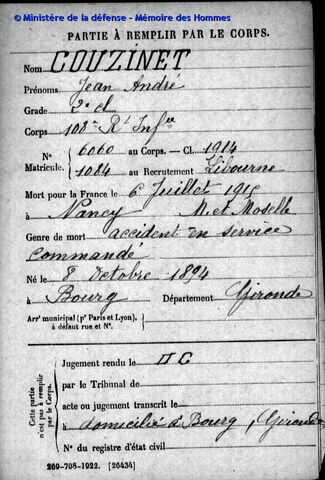 © Ministère de la défense - Mémoire des Hommes
PARTIE À REMPLIR PAR LE CORPS.
Nom COUZINET
Prénoms Jean André
Grade 2e cl
Corps 108e Rt Infie
N° 6060 au Corps. — Cl. 1914
Matricule. 1084 au Recrutement Libourne
Mort pour la France le 6 Juillet 1915
à Nancy M. et Moselle
Genre de mort accident en service
commandé
Né le 8 Octobre 1894
à Bourg Département Gironde
Arrt municipal (pr Paris et Lyon),
à défaut rue et N°.
Cette partie n'est pas à remplir par le Corps.
Jugement rendu le
par le Tribunal de
acte ou jugement transcrit le
à domicilié à Bourg, Gironde
N° du registre d'état civil
269-708-1922. [26434]